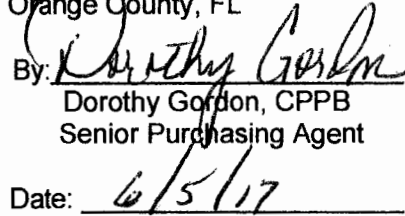 Orange County, FL
By: Dorothy Gordon
Dorothy Gordon, CPPB
Senior Purchasing Agent
Date: 6/5/17